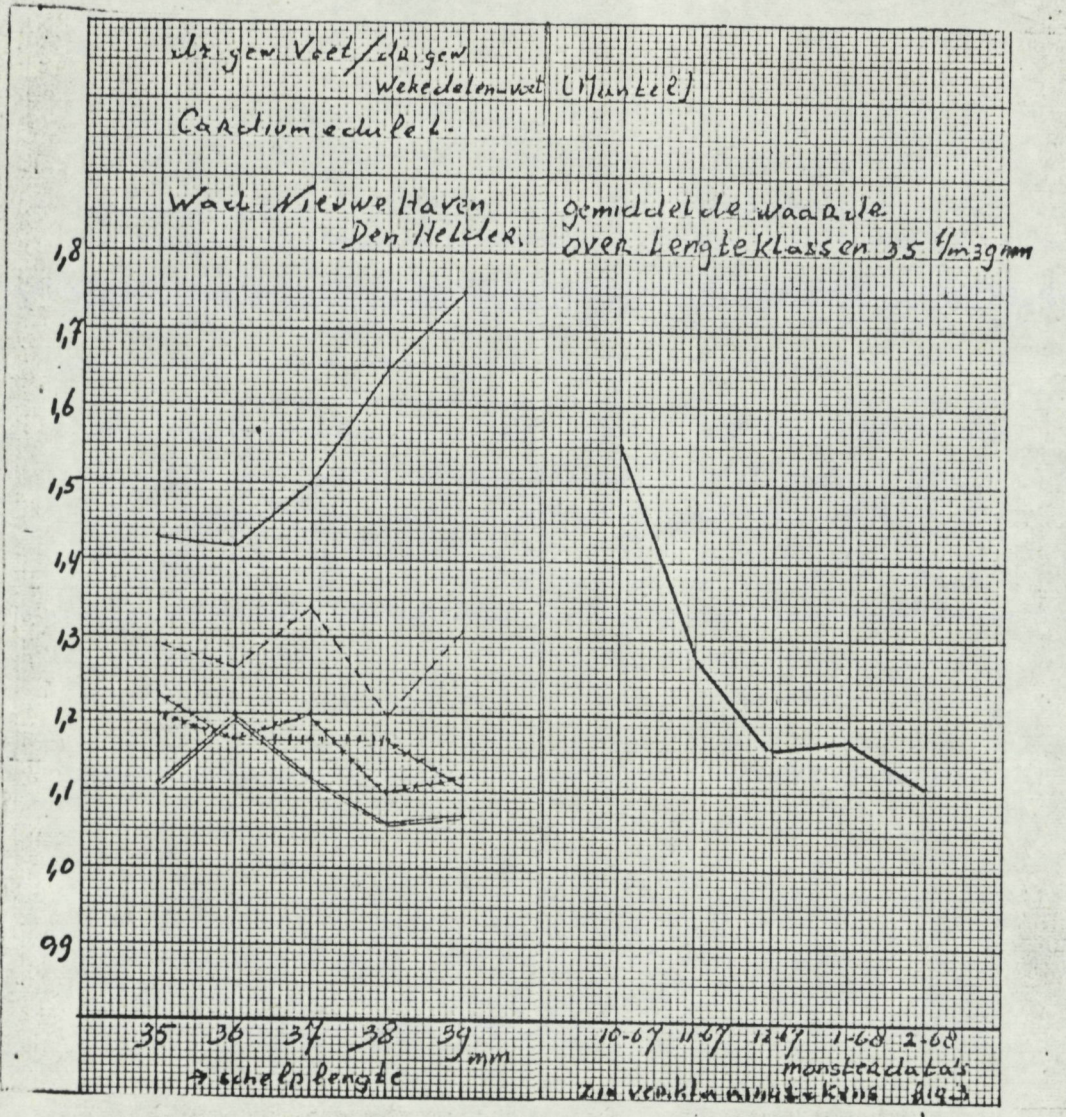 dr. gew. Voet/dr. gew
wekedelen-voet (Mantel)
Cardium edule L.
Wad. Nieuwe Haven
Den Helder.
gemiddelde waarde
over Lengteklassen 35 t/m 39 mm
1,8
1,7
1,6
1,5
1,4
1,3
1,2
1,1
1,0
0,9
35 36 37 38 39 mm
→ schelplengte
10-67 11-67 12-67 1-68 2-68
monsterdata's
Zie verkl. fig. 3